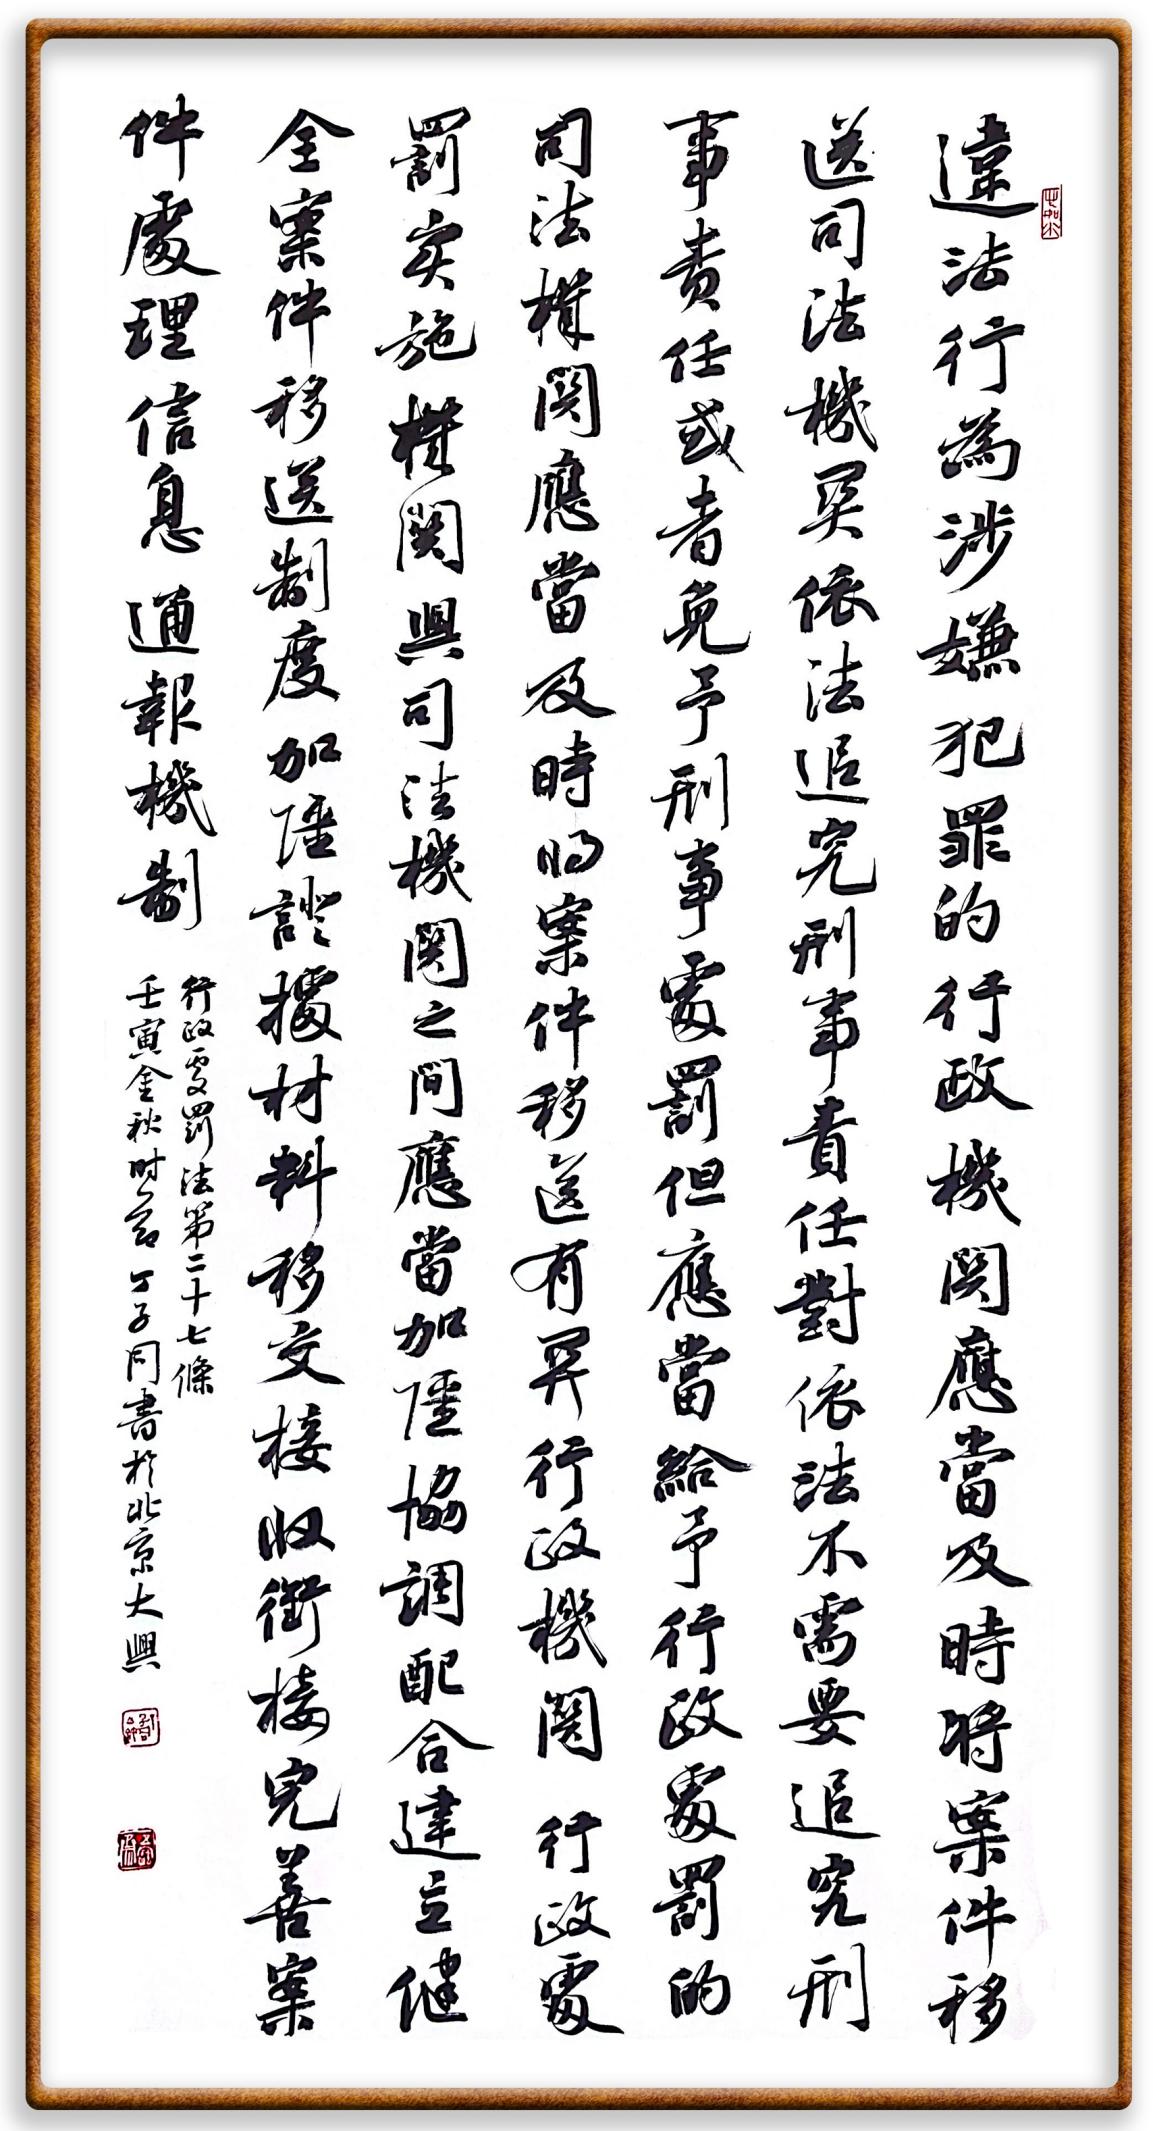 違法行為涉嫌犯罪的行政機関應當及時將案件移
送司法機関依法追究刑事責任對依法不需要追究刑
事责任或者免予刑事處罰但應當給予行政處罰的
司法機関應當及時将案件移送有関行政機関行政處
罰实施機関與司法機関之间應當加强協調配合建立健
全案件移送制度加强證據材料移交接收銜接完善案
件處理信息通報機制
行政處罰法第二十七條
壬寅金秋时节丁子同書於北京大興